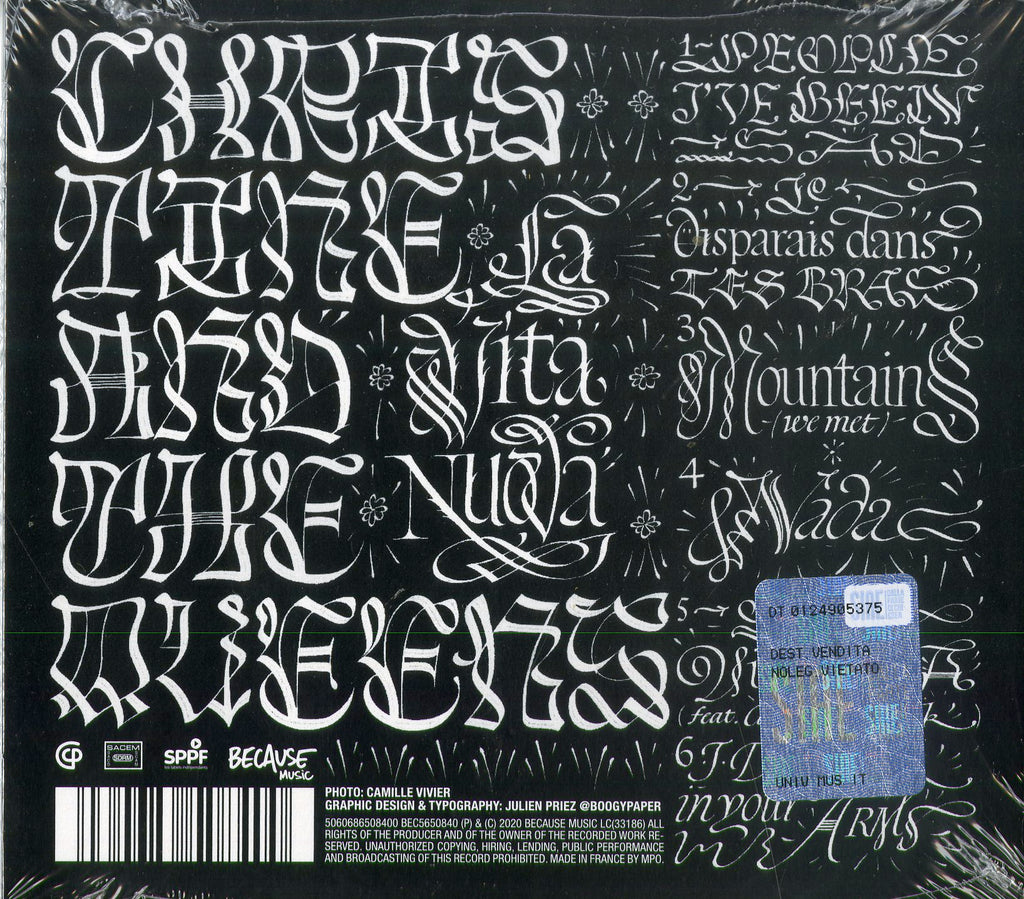 CHRIS
TINE
AND
THE
QUEENS
La
Vita
Nuova
1 PEOPLE,
I'VE BEEN
SAD
2 Je
disparais dans
TES BRAS
3
MountainS
(we met)
4
Nada
5
(feat.
6 I D
in your
ARMS
DT 0124905375
SIAE
DEST.VENDITA
NOLEG.VIETATO
SIAE
UNIV MUS IT
CP
SACEM
SDRM
SPPF
les labels indépendants
BECAUSE
MUSIC
PHOTO: CAMILLE VIVIER
GRAPHIC DESIGN & TYPOGRAPHY: JULIEN PRIEZ @BOOGYPAPER
5060686508400 BEC5650840 (P) & (C) 2020 BECAUSE MUSIC LC(33186) ALL
RIGHTS OF THE PRODUCER AND OF THE OWNER OF THE RECORDED WORK RE-
SERVED. UNAUTHORIZED COPYING, HIRING, LENDING, PUBLIC PERFORMANCE
AND BROADCASTING OF THIS RECORD PROHIBITED. MADE IN FRANCE BY MPO.